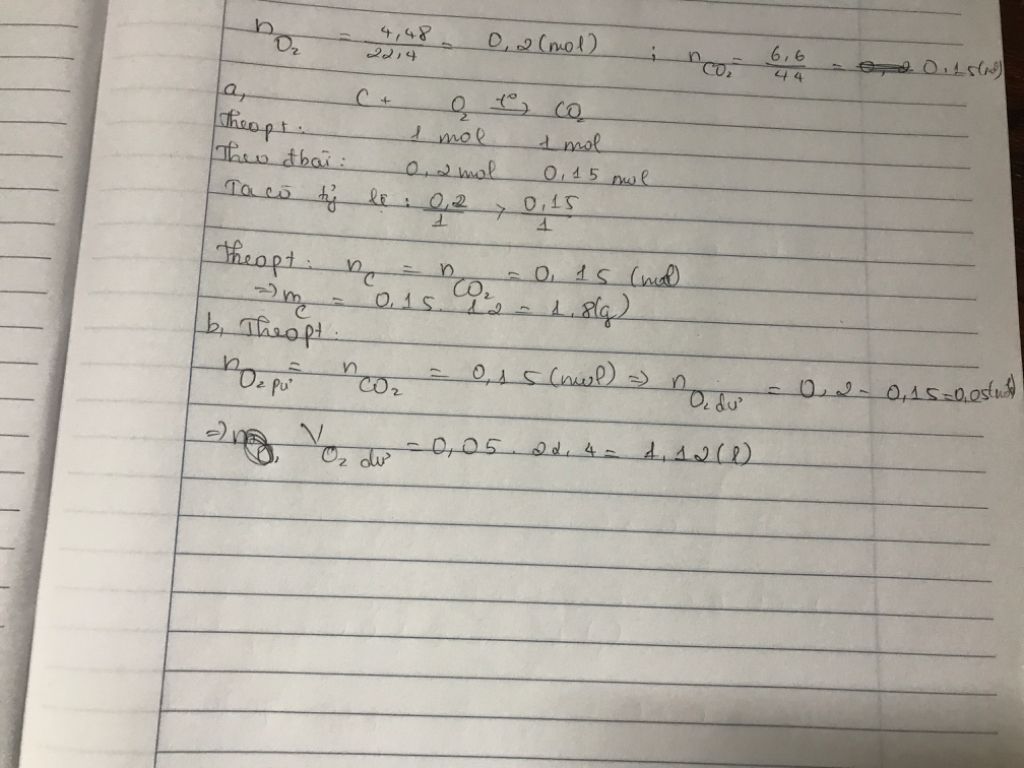 nO₂ = 4,48/22,4 = 0,2 (mol) ; nCO₂ = 6,6/44 = 0,15 (mol)
a, C + O₂ -t°-> CO₂
Theo pt: 1 mol 1 mol
Theo đbài: 0,2 mol 0,15 mol
Ta có tỷ lệ: 0,2/1 > 0,15/1
Theo pt: nC = nCO₂ = 0,15 (mol)
=> mC = 0,15 . 12 = 1,8(g)
b, Theo pt:
nO₂ pư = nCO₂ = 0,15 (mol) => nO₂ dư = 0,2 - 0,15 = 0,05(mol)
=> VO₂ dư = 0,05 . 22,4 = 1,12 (l)